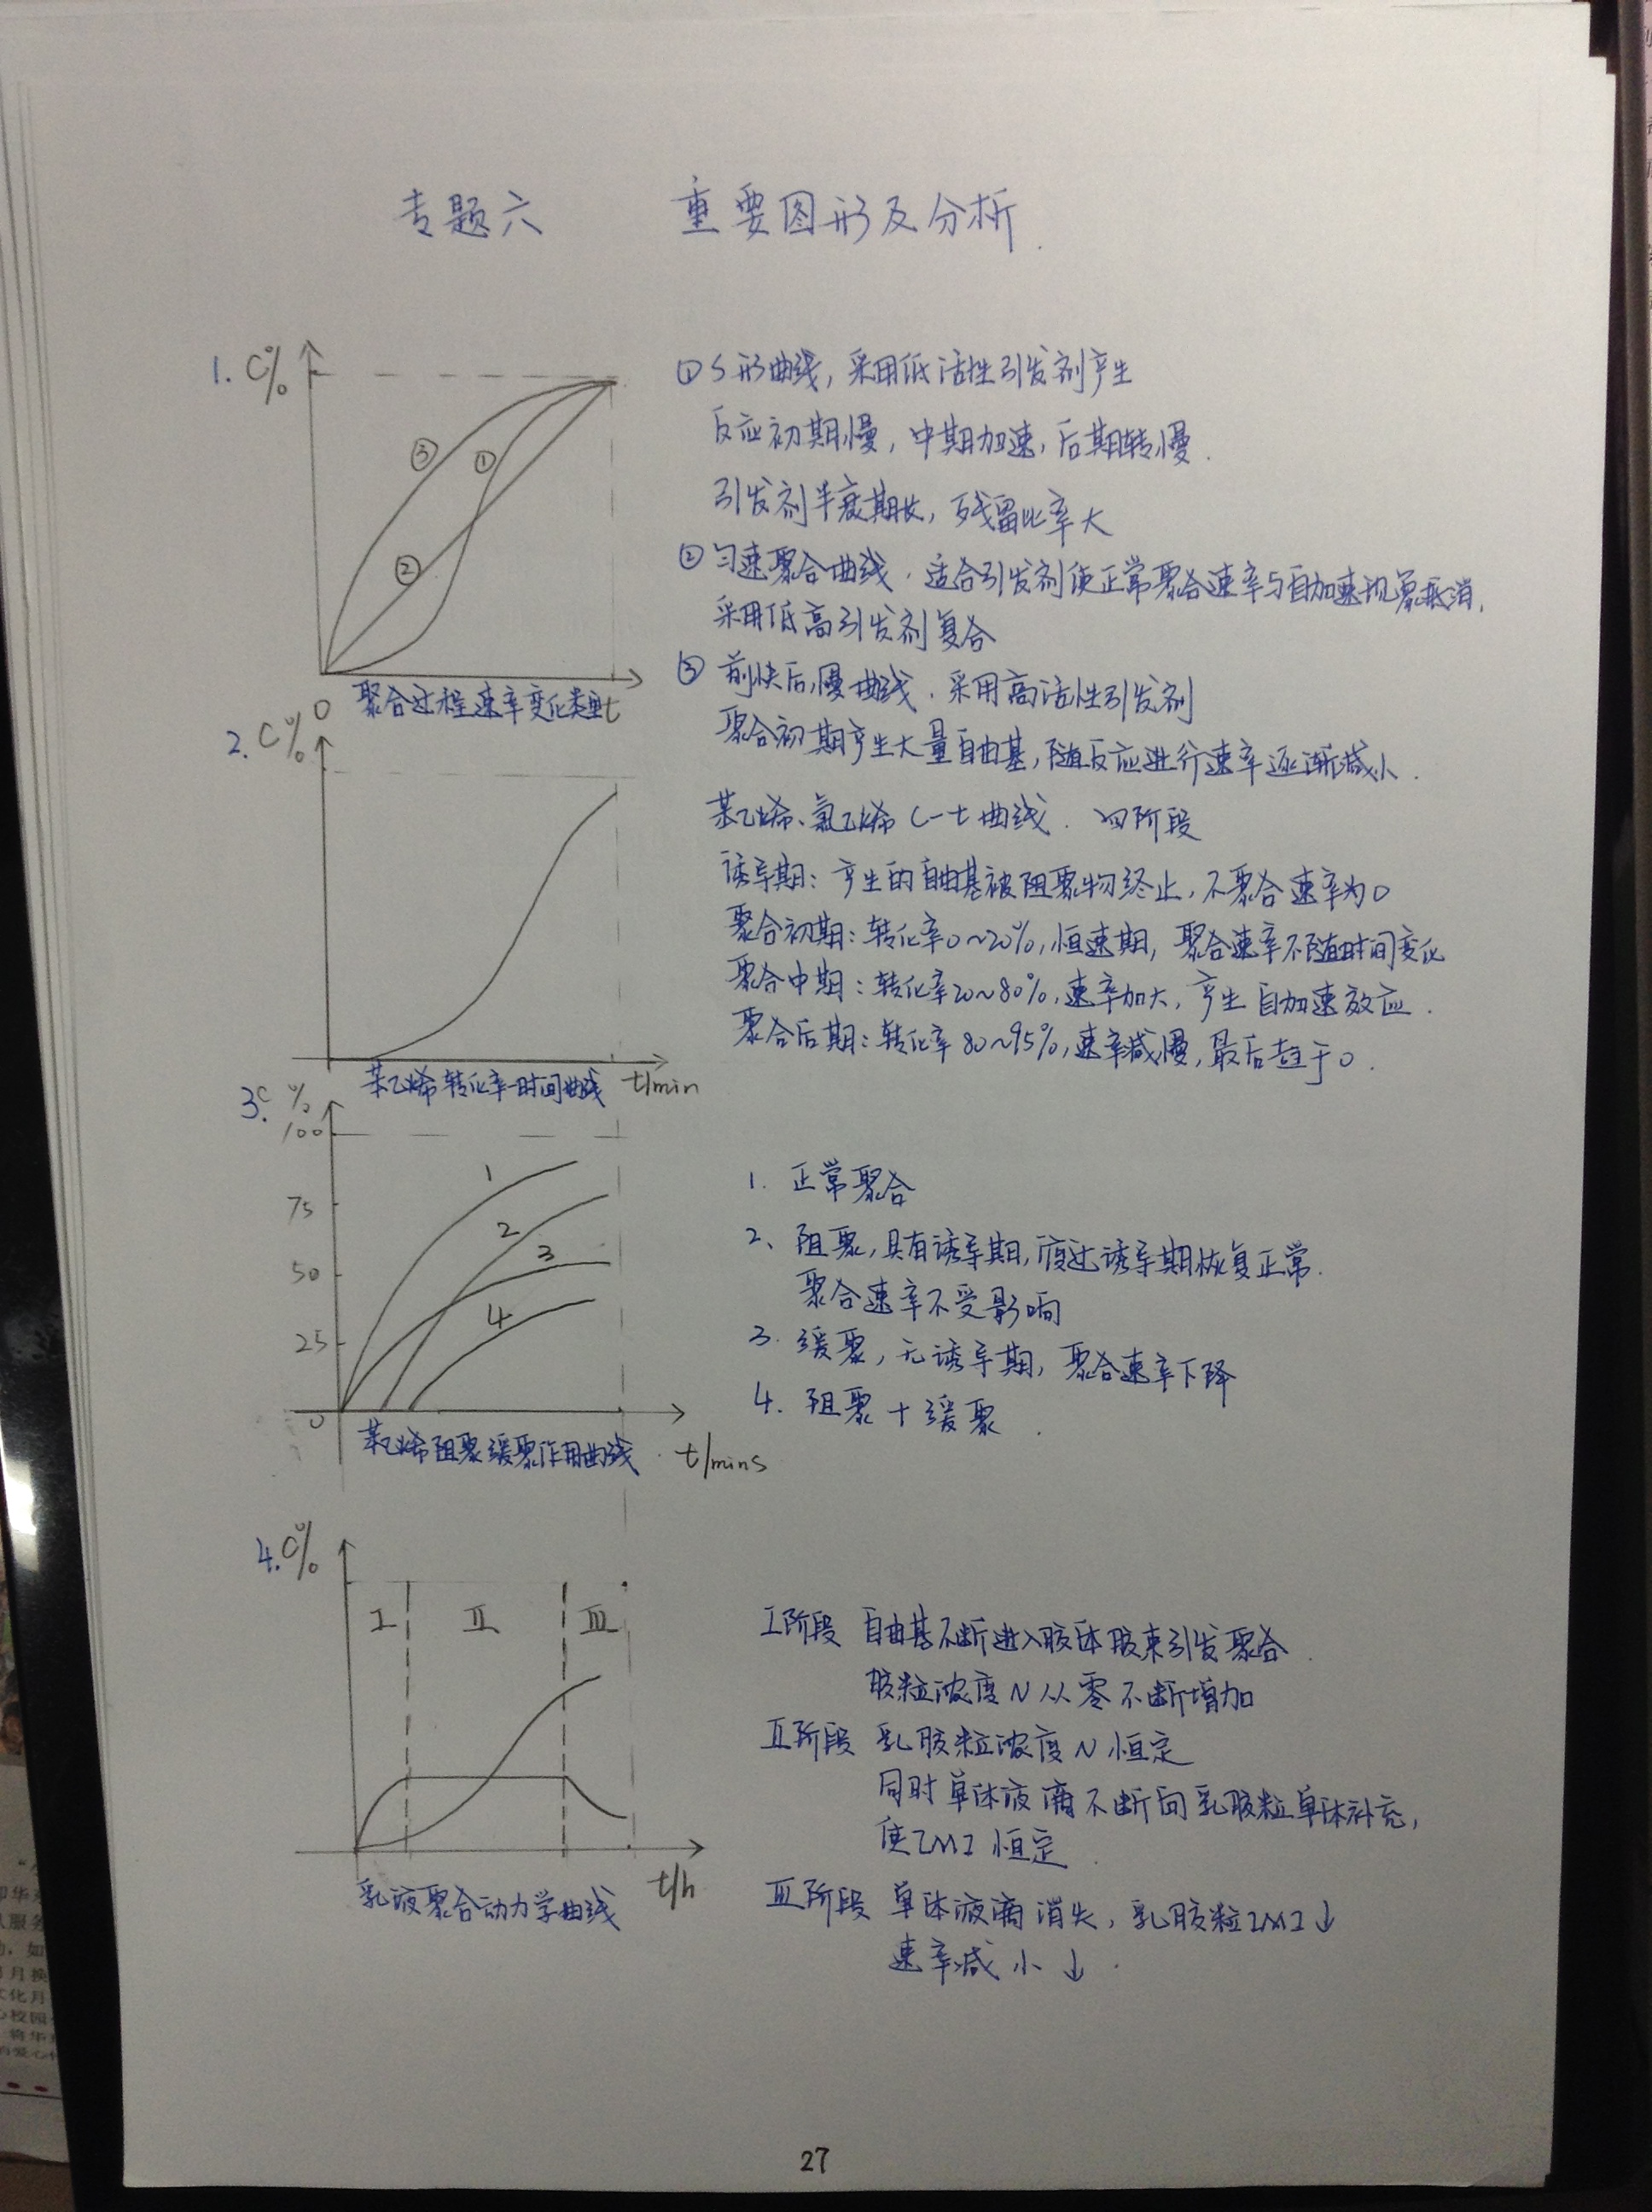 专题六 重要图形及分析.
1. C%
③ ① ②
0 聚合过程速率变化类型 t
①S形曲线, 采用低活性引发剂产生
反应初期慢, 中期加速, 后期转慢.
引发剂半衰期长, 残留比率大
②匀速聚合曲线. 适合引发剂使正常聚合速率与自加速现象抵消,
采用低高引发剂复合
③ 前快后慢曲线. 采用高活性引发剂
聚合初期产生大量自由基, 随反应进行速率逐渐减小.
2. C%
苯乙烯转化率-时间曲线 t/min
苯乙烯、氯乙烯 C-t曲线. 四阶段
诱导期: 产生的自由基被阻聚物终止, 不聚合速率为0
聚合初期: 转化率0~20%, 恒速期, 聚合速率不随时间变化
聚合中期: 转化率20~80%, 速率加大, 产生自加速效应.
聚合后期: 转化率80~95%, 速率减慢, 最后趋于0.
3. C%
100
75
50
25
0
1
2
3
4
苯乙烯阻聚缓聚作用曲线 t/mins
1. 正常聚合
2、阻聚, 具有诱导期, 度过诱导期恢复正常.
聚合速率不受影响
3. 缓聚, 无诱导期, 聚合速率下降
4. 阻聚 + 缓聚.
4. C%
I II III
乳液聚合动力学曲线 t/h
I阶段 自由基不断进入胶体胶束引发聚合.
胶粒浓度N从零不断增加
II阶段 乳胶粒浓度N恒定
同时单体液滴不断向乳胶粒单体补充,
使[M]恒定.
III阶段 单体液滴消失, 乳胶粒[M]↓
速率减小↓.
27